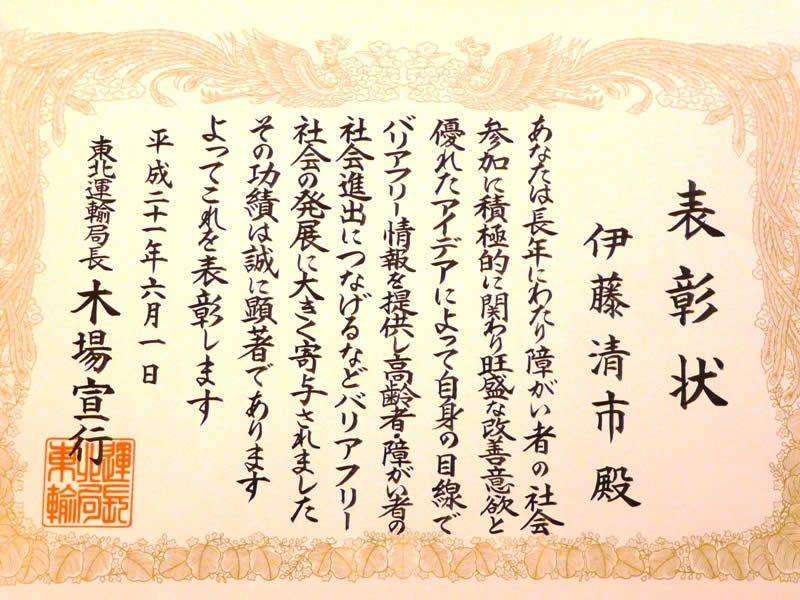 表彰状
伊藤清市殿
あなたは長年にわたり障がい者の社会
参加に積極的に関わり旺盛な改善意欲と
優れたアイデアによって自身の目線で
バリアフリー情報を提供し高齢者・障がい者の
社会進出につなげるなどバリアフリー
社会の発展に大きく寄与されました
その功績は誠に顕著であります
よってこれを表彰します
平成二十一年六月一日
東北運輸局長 木場宣行
運長
北局
東輸